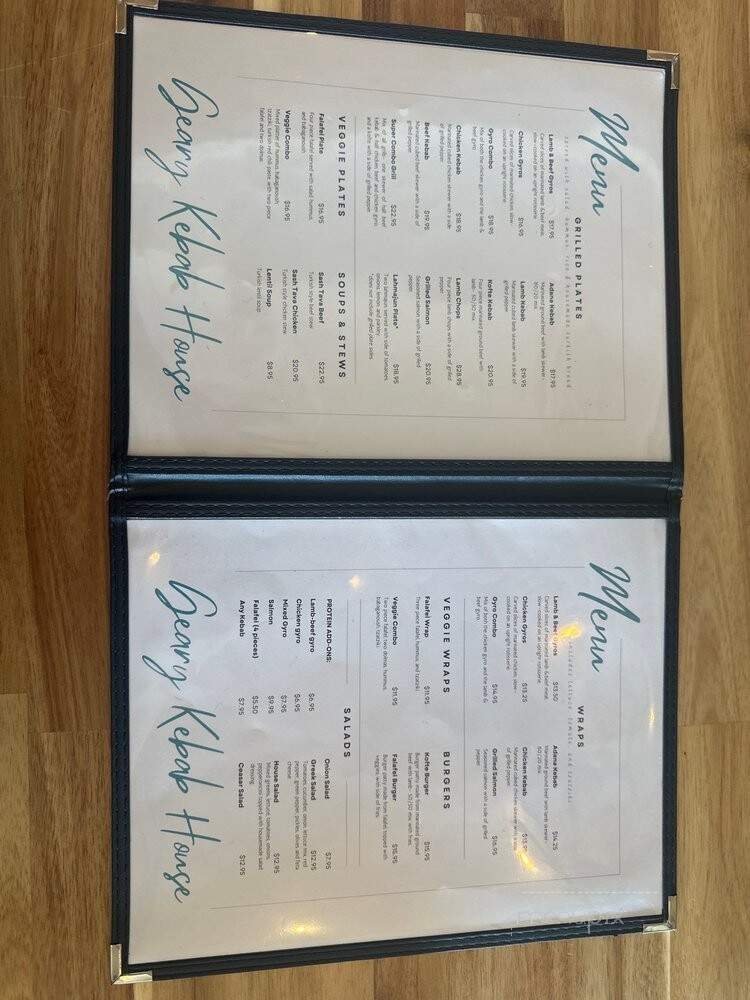 Menu
GRILLED PLATES
served with salad, hummus, rice & homemade turkish bread
Lamb & Beef Gyros $17.95
Carved slices of marinated lamb & beef meat,
slow-cooked on an upright rotisserie.
Chicken Gyros $16.95
Carved slices of marinated chicken, slow-
cooked on an upright rotisserie.
Gyro Combo $18.95
Mix of both the chicken gyro and the lamb &
beef gyro.
Chicken Kebab $18.95
Marinated cubed chicken skewer with a side
of grilled pepper.
Beef Kebab $19.95
Marinated cubed beef skewer with a side of
grilled pepper.
Super Combo Grill $22.95
Mix of all grills- one skewer of half beef
kebab & half chicken kebab, beef and chicken gyro,
and a kofte with a side of grilled pepper.
Adana Kebab $17.95
Marinated ground beef with lamb skewer-
80/20 mix.
Lamb Kebab $19.95
Marinated cubed lamb skewer with a side of
grilled pepper.
Kofte Kebab $20.95
Four piece marinated ground beef with
lamb- 50/50 mix.
Lamb Chops $28.95
Four piece lamb chops with a side of grilled
pepper.
Grilled Salmon $20.95
Seasoned salmon with a side of grilled
pepper.
Lahmajun Plate* $18.95
Two lahmajun served with side of tomatoes,
onions, lemon, and parsley.
*does not include grilled plate sides
VEGGIE PLATES
Falafel Plate $16.95
Four piece falafel served with salad, hummus,
and babaganoush.
Veggie Combo $16.95
Mixed platter of hummus, babaganoush,
tzatziki, turkish red chili paste, with two piece
falafel and two dolmas.
SOUPS & STEWS
Sash Tava Beef $22.95
Turkish style beef stew
Sash Tava Chicken $20.95
Turkish style chicken stew
Lentil Soup $8.95
Turkish lentil soup
Geary Kebab House
Menu
WRAPS
includes lettuce, tomato, and tzatziki
Lamb & Beef Gyros $13.50
Carved slices of marinated lamb & beef meat,
slow-cooked on an upright rotisserie.
Chicken Gyros $13.25
Carved slices of marinated chicken, slow-
cooked on an upright rotisserie.
Gyro Combo $14.95
Mix of both the chicken gyro and the lamb &
beef gyro.
Adana Kebab $14.25
Marinated ground beef with lamb skewer-
80/20 mix.
Chicken Kebab
Marinated cubed chicken skewer with a side
of grilled pepper.
Grilled Salmon $16.95
Seasoned salmon with a side of grilled
pepper.
VEGGIE WRAPS
Falafel Wrap $11.95
Three piece falafel, hummus, and tzatziki.
Veggie Combo $11.95
Two piece falafel, two dolmas, hummus,
babaganoush, tzatziki.
BURGERS
Kofte Burger $15.95
Burger patty made from marinated ground
beef with lamb- 50/50 mix with fries.
Falafel Burger $15.95
Burger patty made from falafel, topped with
veggies, with side of fries.
SALADS
PROTEIN ADD-ONS:
Lamb-beef gyro $6.95
Chicken gyro $6.95
Mixed Gyro $7.95
Salmon $9.95
Falafel (4 pieces) $5.50
Any Kebab $7.95
Onion Salad $7.95
Greek Salad $12.95
Tomatoes, cucumber, onion, lettuce mix, red
pepper, green pepper, pickles, olives and feta
cheese
House Salad $12.95
Mixed greens, lettuce, tomatoes, onions,
pepperoncini, topped with housemade salad
dressing
Ceasar Salad $12.95
Geary Kebab House